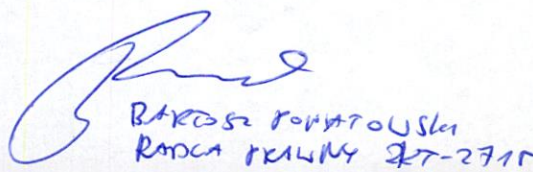 BARTOSZ PONIATOWSKI
RADCA PRAWNY